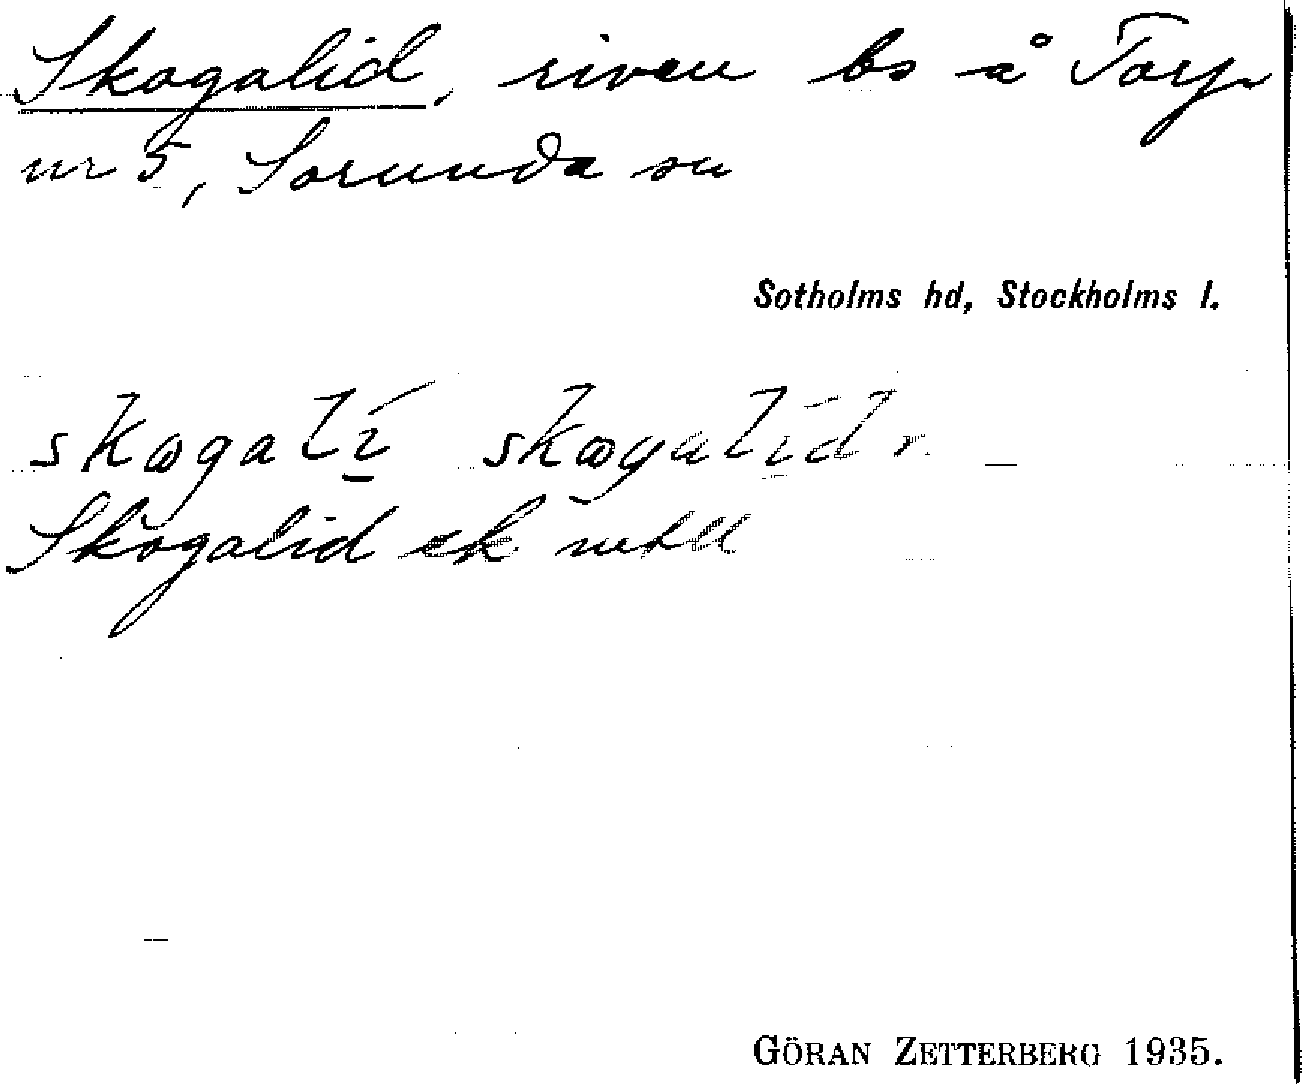 Skogalid, riven bs å Torp
nr 5, Sorunda sn
Sotholms hd, Stockholms l.
skogalí skogalid
Skogalid ek
GÖRAN ZETTERBERG 1935.